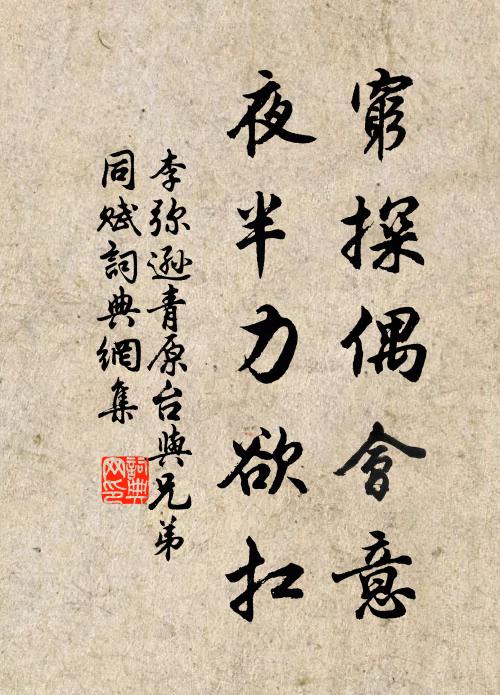 窮探偶會意
夜半力欲扛
李弥遜青原台與兄弟
同赋詞典網集
詞典网印